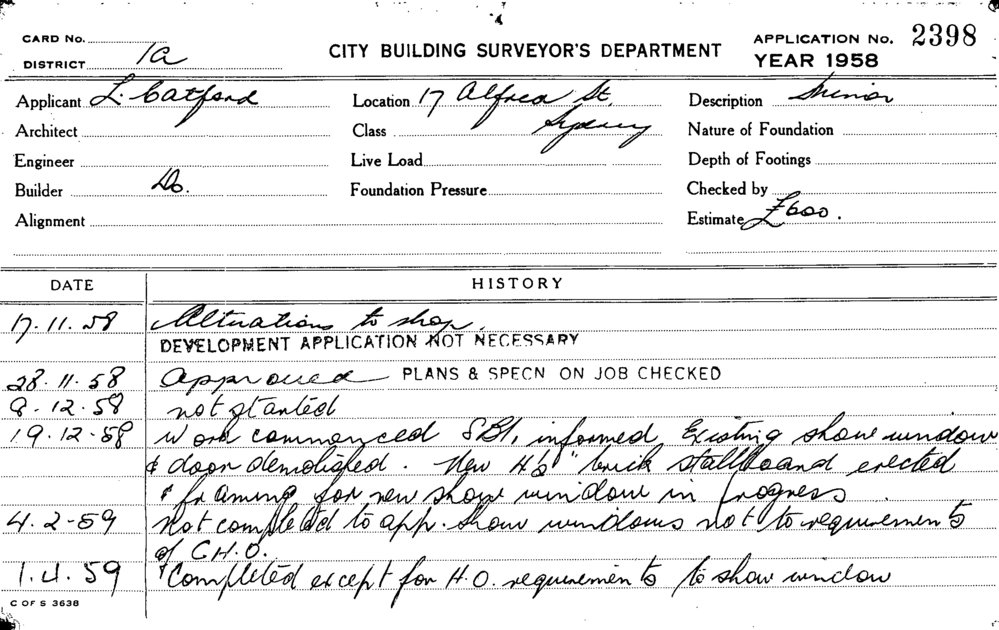 CARD No.
DISTRICT 1a
CITY BUILDING SURVEYOR'S DEPARTMENT
APPLICATION No. 2398
YEAR 1958
Applicant L. Catford
Location 17 Alfred St,
Description Minor
Architect
Class Sydney
Nature of Foundation
Engineer
Live Load
Depth of Footings
Builder Do.
Foundation Pressure
Checked by
Alignment
Estimate £600.
DATE HISTORY
17.11.58 Alterations to shop.
DEVELOPMENT APPLICATION NOT NECESSARY
28.11.58 Approved PLANS & SPECN ON JOB CHECKED
9.12.58 not started
19.12.58 Work commenced SBI, informed, Existing show window
& door demolished. New brick stallboard erected
& framing for new show window in progress
4.2-59 Not completed to app. show windows not to requirements
of C.H.O.
1.4.59 Completed except for H.O. requirements to show window
C OF S 3638